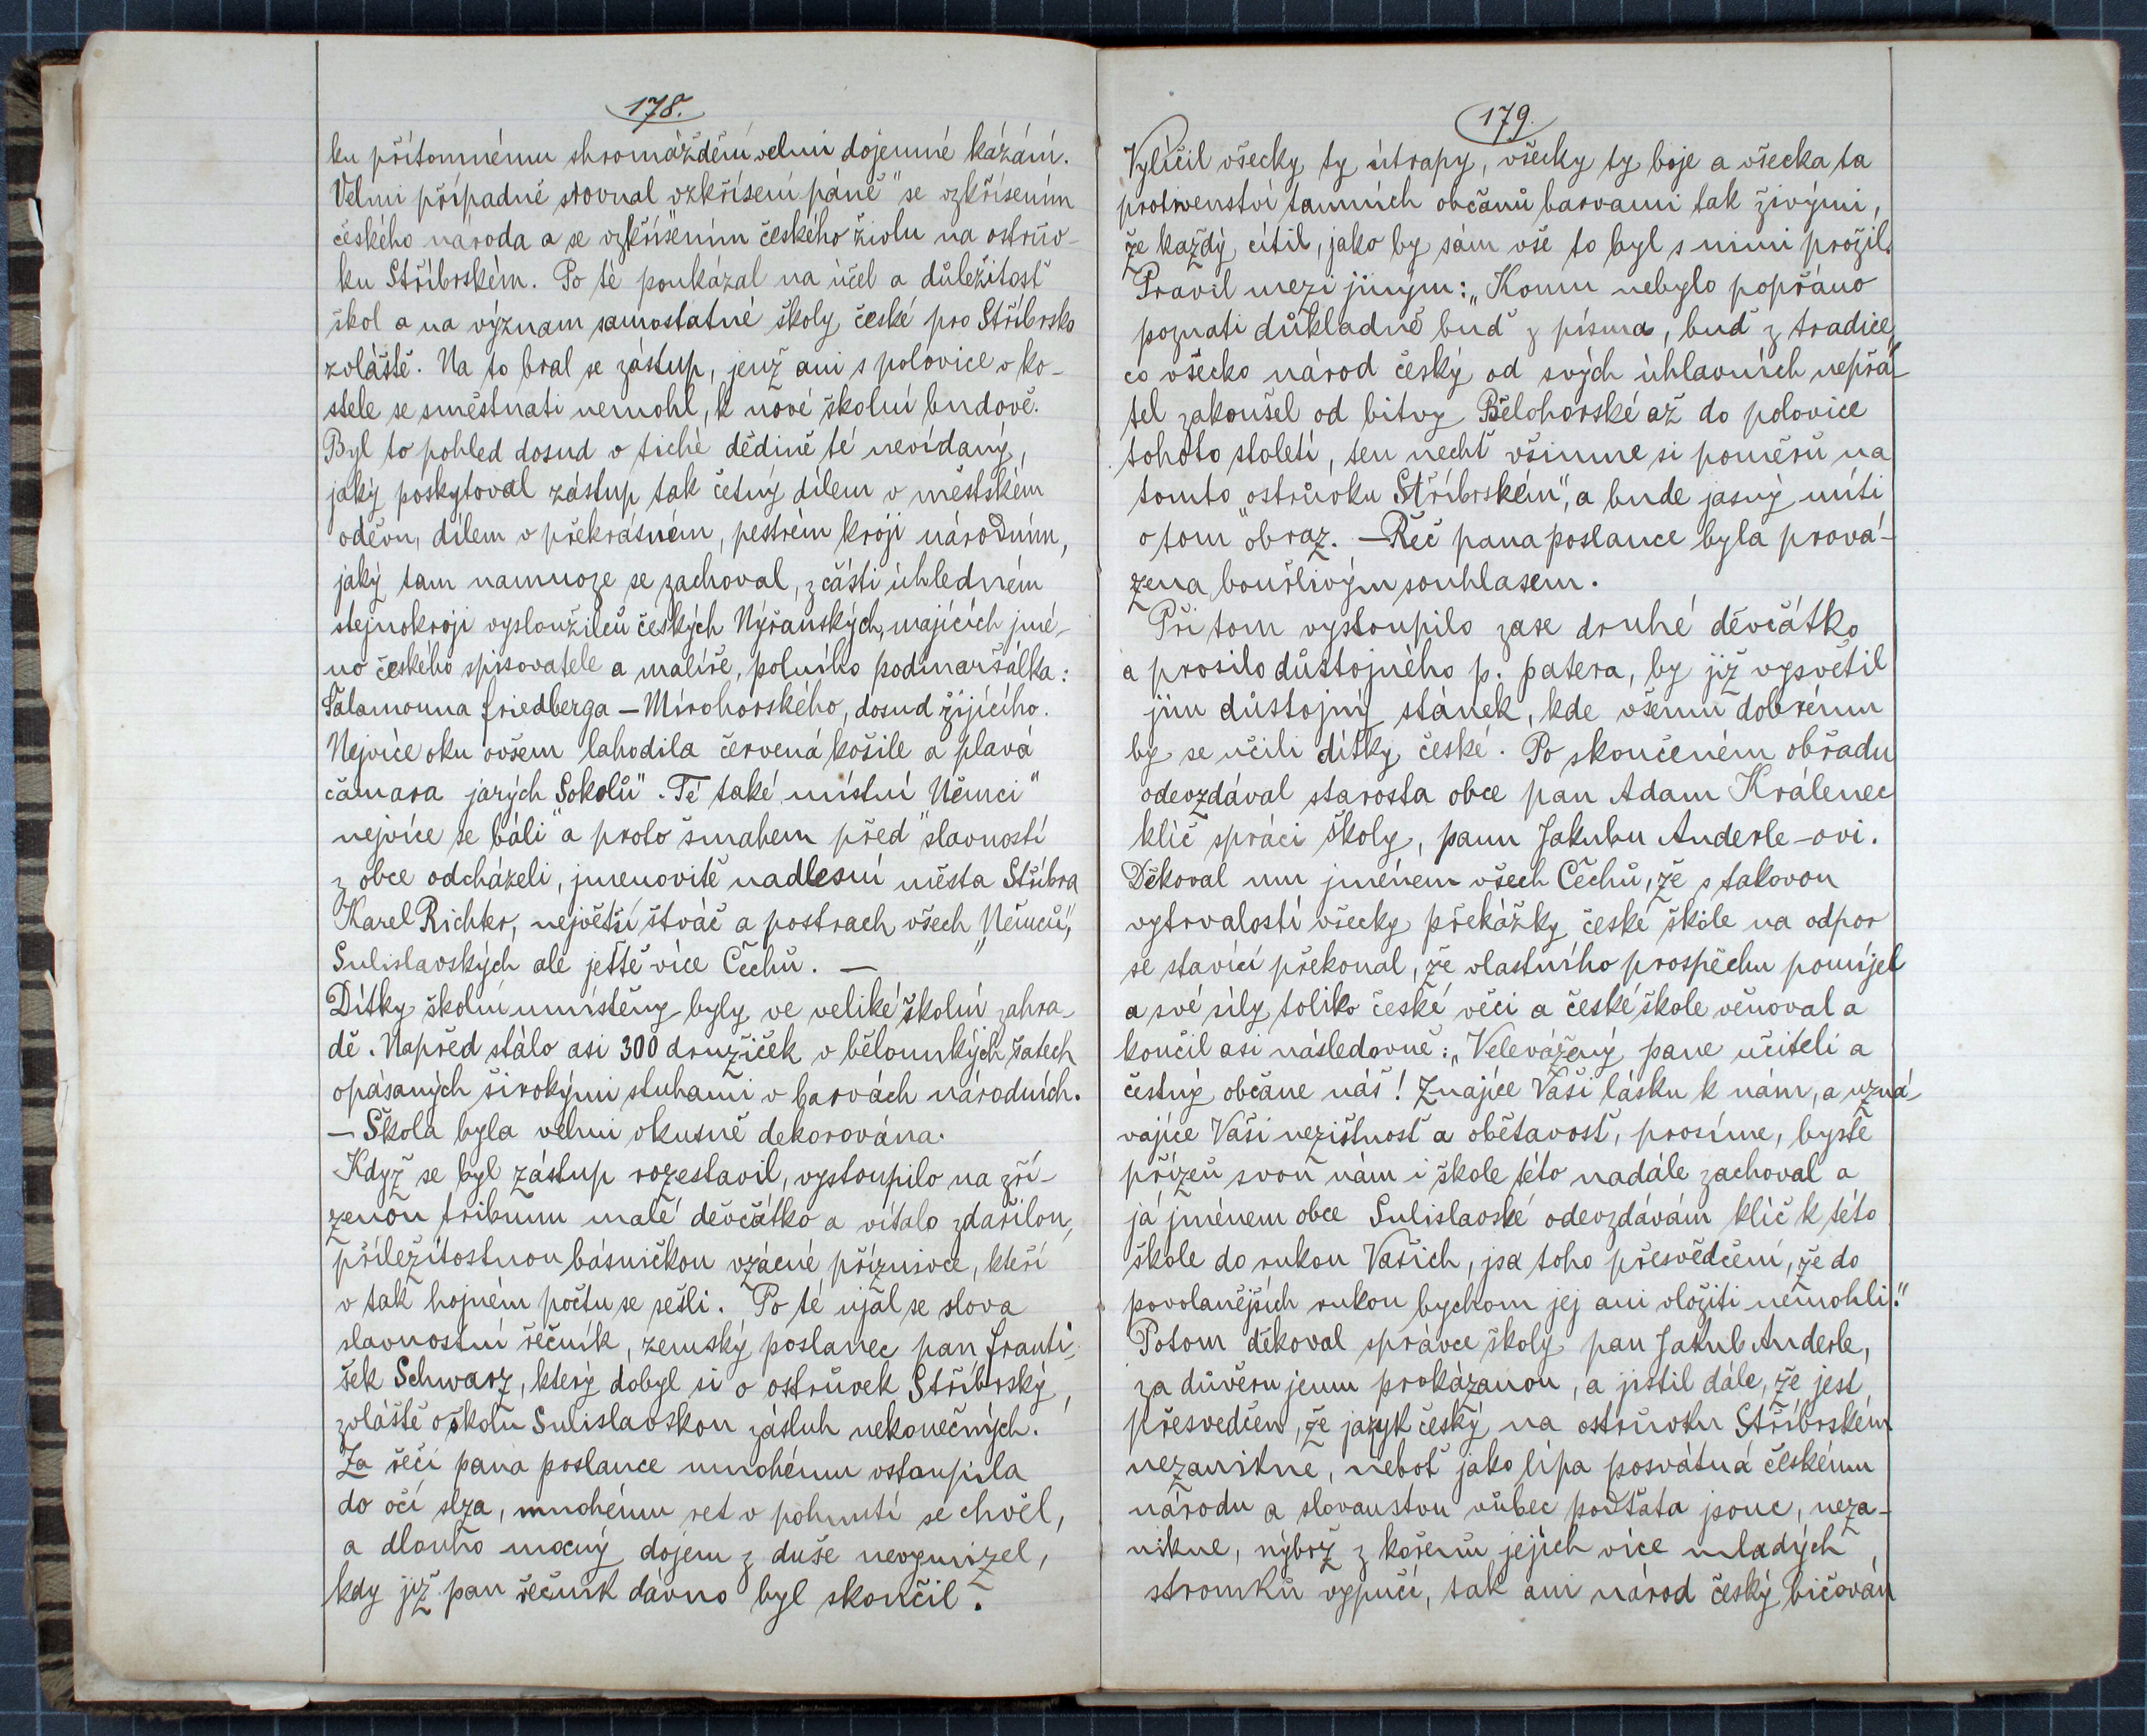 178.
ku přítomnému shromáždění velmi dojemné kázání.
Velmi případně srovnal vzkříšení páně" se vzkříšením
českého národa a se vzkříšením českého živlu na ostrův-
ku Stříbrském. Po té poukázal na účel a důležitosť
škol a na význam samostatné školy české pro Stříbrsko
zvláště. Na to bral se zástup, jenž ani s polovice v ko-
stele se směstnati nemohl, k nové školní budově.
Byl to pohled dosud v tiché dědině té nevídaný,
jaký poskytoval zástup tak četný dílem v městském
oděvu, dílem v překrásném, pestrém kroji národním,
jaký tam namnoze se zachoval, z části úhledném
stejnokroji vysloužilců českých Nýřanských, majících jmé-
no českého spisovatele a malíře, polního podmaršálka:
Salamouna Friedberga – Mírohorského, dosud žijícího.
Nejvíce oku ovšem lahodila červená košile a plavá
čamara jarých Sokolů". Té také místní Němci"
nejvíce se báli" a proto šmahem před "slavností
z obce odcházeli, jmenovitě nadlesní města Stříbra
Karel Richter, největší štváč a postrach všech „Němců",
Sulislavských ale ještě více Čechů. —
Dítky školní umístěny byly ve veliké školní zahra-
dě. Napřed stálo asi 300 družiček v bělounkých šatech
opásaných širokými stuhami v barvách národních.
— Škola byla velmi vkusně dekorována.
Když se byl zástup rozestavil, vystoupilo na zří-
zenou tribunu malé děvčátko a vítalo zdařilou,
příležitostnou básničkou vzácné příznivce, kteří
v tak hojném počtu se sešli. Po té ujal se slova
slavnostní řečník, zemský poslanec pan Franti-
šek Schwarz, který dobyl si o ostrůvek Stříbrský,
zvláště o školu Sulislavskou zásluh nekonečných.
Za řeči pana poslance mnohému vstoupila
do očí slza, mnohému ret v pohnutí se chvěl,
a dlouho mocný dojem z duše nevymizel,
kdy již pan řečník dávno byl skončil.
179.
Vylíčil všecky ty útrapy, všecky ty boje a všecka ta
protivenství tamních občanů barvami tak živými,
že každý cítil, jako by sám vše to byl s nimi prožil.
Pravil mezi jiným: „Komu nebylo popřáno
poznati důkladně buď z písma, buď z tradice,
co všecko národ český od svých úhlavních nepřá-
tel zakoušel od bitvy Bělohorské až do polovice
tohoto století, ten nechť všimne si poměrů na
tomto „ostrůvku Stříbrském", a bude jasný míti
o tom "obraz. — Řeč pana poslance byla prová-
zena bouřlivým souhlasem.
Při tom vystoupilo zase druhé děvčátko
a prosilo důstojného p. patera, by již vysvětil
jim důstojný stánek, kde všemu dobrému
by se učili dítky české. Po skončeném obřadu
odevzdával starosta obce pan Adam Králenec
klíč správci školy, panu Jakubu Anderle-ovi.
Děkoval mu jménem všech Čechů, že s takovou
vytrvalostí všecky překážky české škole na odpor
se stavící překonal, že vlastního prospěchu pomíjel
a své síly toliko české věci a české škole věnoval a
končil asi následovně: „Velevážený pane učiteli a
čestný občane náš! Znajíce Vaši lásku k nám, a uzná-
vajíce Vaši nezištnosť a obětavosť, prosíme, byste
přízeň svou nám i škole této nadále zachoval a
já jménem obce Sulislavské odevzdávám klíč k této
škole do rukou Vašich, jsa toho přesvědčení, že do
povolanějších rukou bychom jej ani vložiti nemohli."
Potom děkoval správce školy pan Jakub Anderle,
za důvěru jemu prokázanou, a jistil dále, že jest
přesvedčen, že jazyk český na ostrůvku Stříbrském
nezanikne, neboť jako lípa posvátná českému
národu a slovanstvu vůbec podťata jsouc, neza-
nikne, nýbrž z kořenů jejích více mladých
stromků vypučí, tak ani národ český bičován